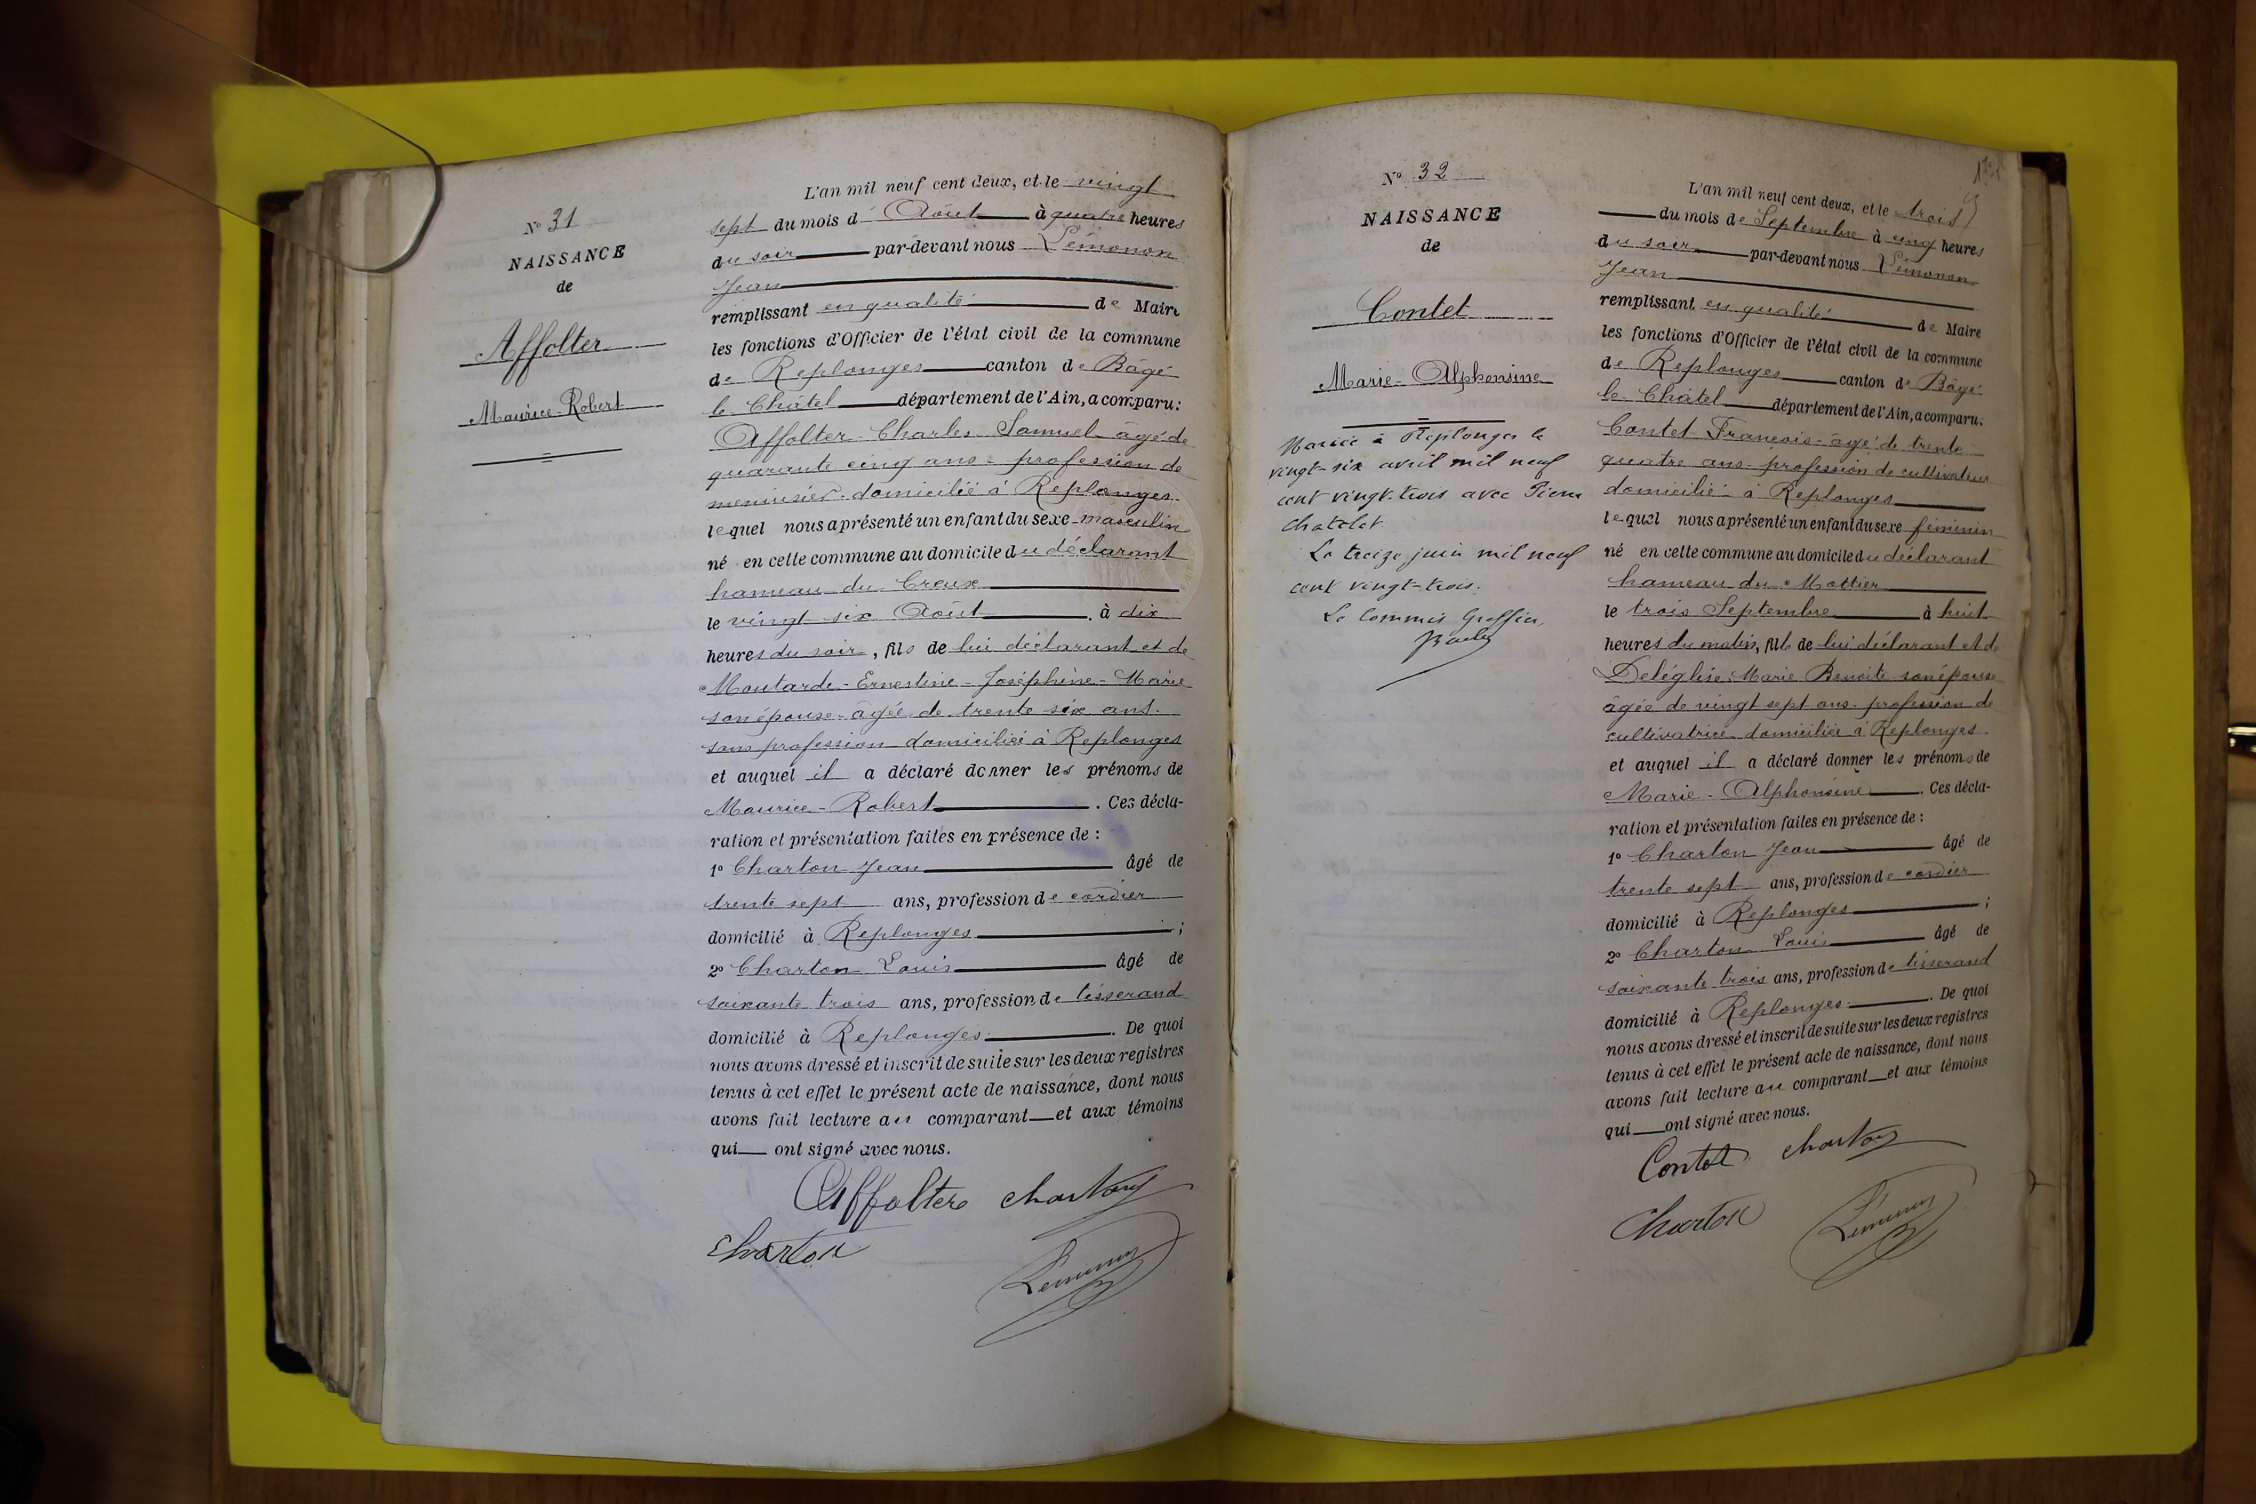 Nº 31
NAISSANCE
de
Affolter
Maurice-Robert
L'an mil neuf cent deux, et le vingt
sept du mois d'Août à quatre heures
du soir par-devant nous Lémonon
Jean
remplissant en qualité de Maire
les fonctions d'Officier de l'état civil de la commune
de Replonges canton de Bâgé
le Châtel département de l'Ain, a comparu:
Affolter Charles Samuel âgé de
quarante cinq ans - profession de
menuisier - domicilié à Replonges -
lequel nous a présenté un enfant du sexe masculin
né en cette commune au domicile du déclarant
hameau du Creux
le vingt six Août à dix
heures du soir, fils de lui déclarant et de
Moutarde - Ernestine - Joséphine - Marie
son épouse - âgée de trente six ans -
sans profession domiciliée à Replonges
et auquel il a déclaré donner les prénoms de
Maurice - Robert. Ces décla-
ration et présentation faites en présence de :
1º Charton Jean âgé de
trente sept ans, profession de cordier
domicilié à Replonges ;
2º Charton Louis âgé de
soixante trois ans, profession de tisserand
domicilié à Replonges. De quoi
nous avons dressé et inscrit de suite sur les deux registres
tenus à cet effet le présent acte de naissance, dont nous
avons fait lecture au comparant et aux témoins
qui ont signé avec nous.
Affolter Charton
Charton
Lémonon
Nº 32
NAISSANCE
de
Contet
Marie-Alphonsine
Mariée à Replonges le
vingt-six avril mil neuf
cent vingt-trois avec Pierre
Chatelet.
Le treize juin mil neuf
cent vingt-trois.
Le Commis Greffier,
L'an mil neuf cent deux, et le trois
du mois de Septembre à cinq heures
du soir par-devant nous Lémonon
Jean
remplissant en qualité de Maire
les fonctions d'Officier de l'état civil de la commune
de Replonges canton de Bâgé
le Châtel département de l'Ain, a comparu:
Contet François - âgé de trente
quatre ans - profession de cultivateur
domicilié à Replonges
lequel nous a présenté un enfant du sexe féminin
né en cette commune au domicile du déclarant
hameau du Mottier
le trois Septembre à huit
heures du matin, fille de lui déclarant et de
Deléglise Marie Benoite son épouse
âgée de vingt sept ans - profession de
cultivatrice domiciliée à Replonges -
et auquel il a déclaré donner les prénoms de
Marie - Alphonsine. Ces décla-
ration et présentation faites en présence de :
1º Charton Jean âgé de
trente sept ans, profession de cordier
domicilié à Replonges ;
2º Charton Louis âgé de
soixante trois ans, profession de tisserand
domicilié à Replonges. De quoi
nous avons dressé et inscrit de suite sur les deux registres
tenus à cet effet le présent acte de naissance, dont nous
avons fait lecture au comparant et aux témoins
qui ont signé avec nous.
Contet Charton
Charton
Lémonon